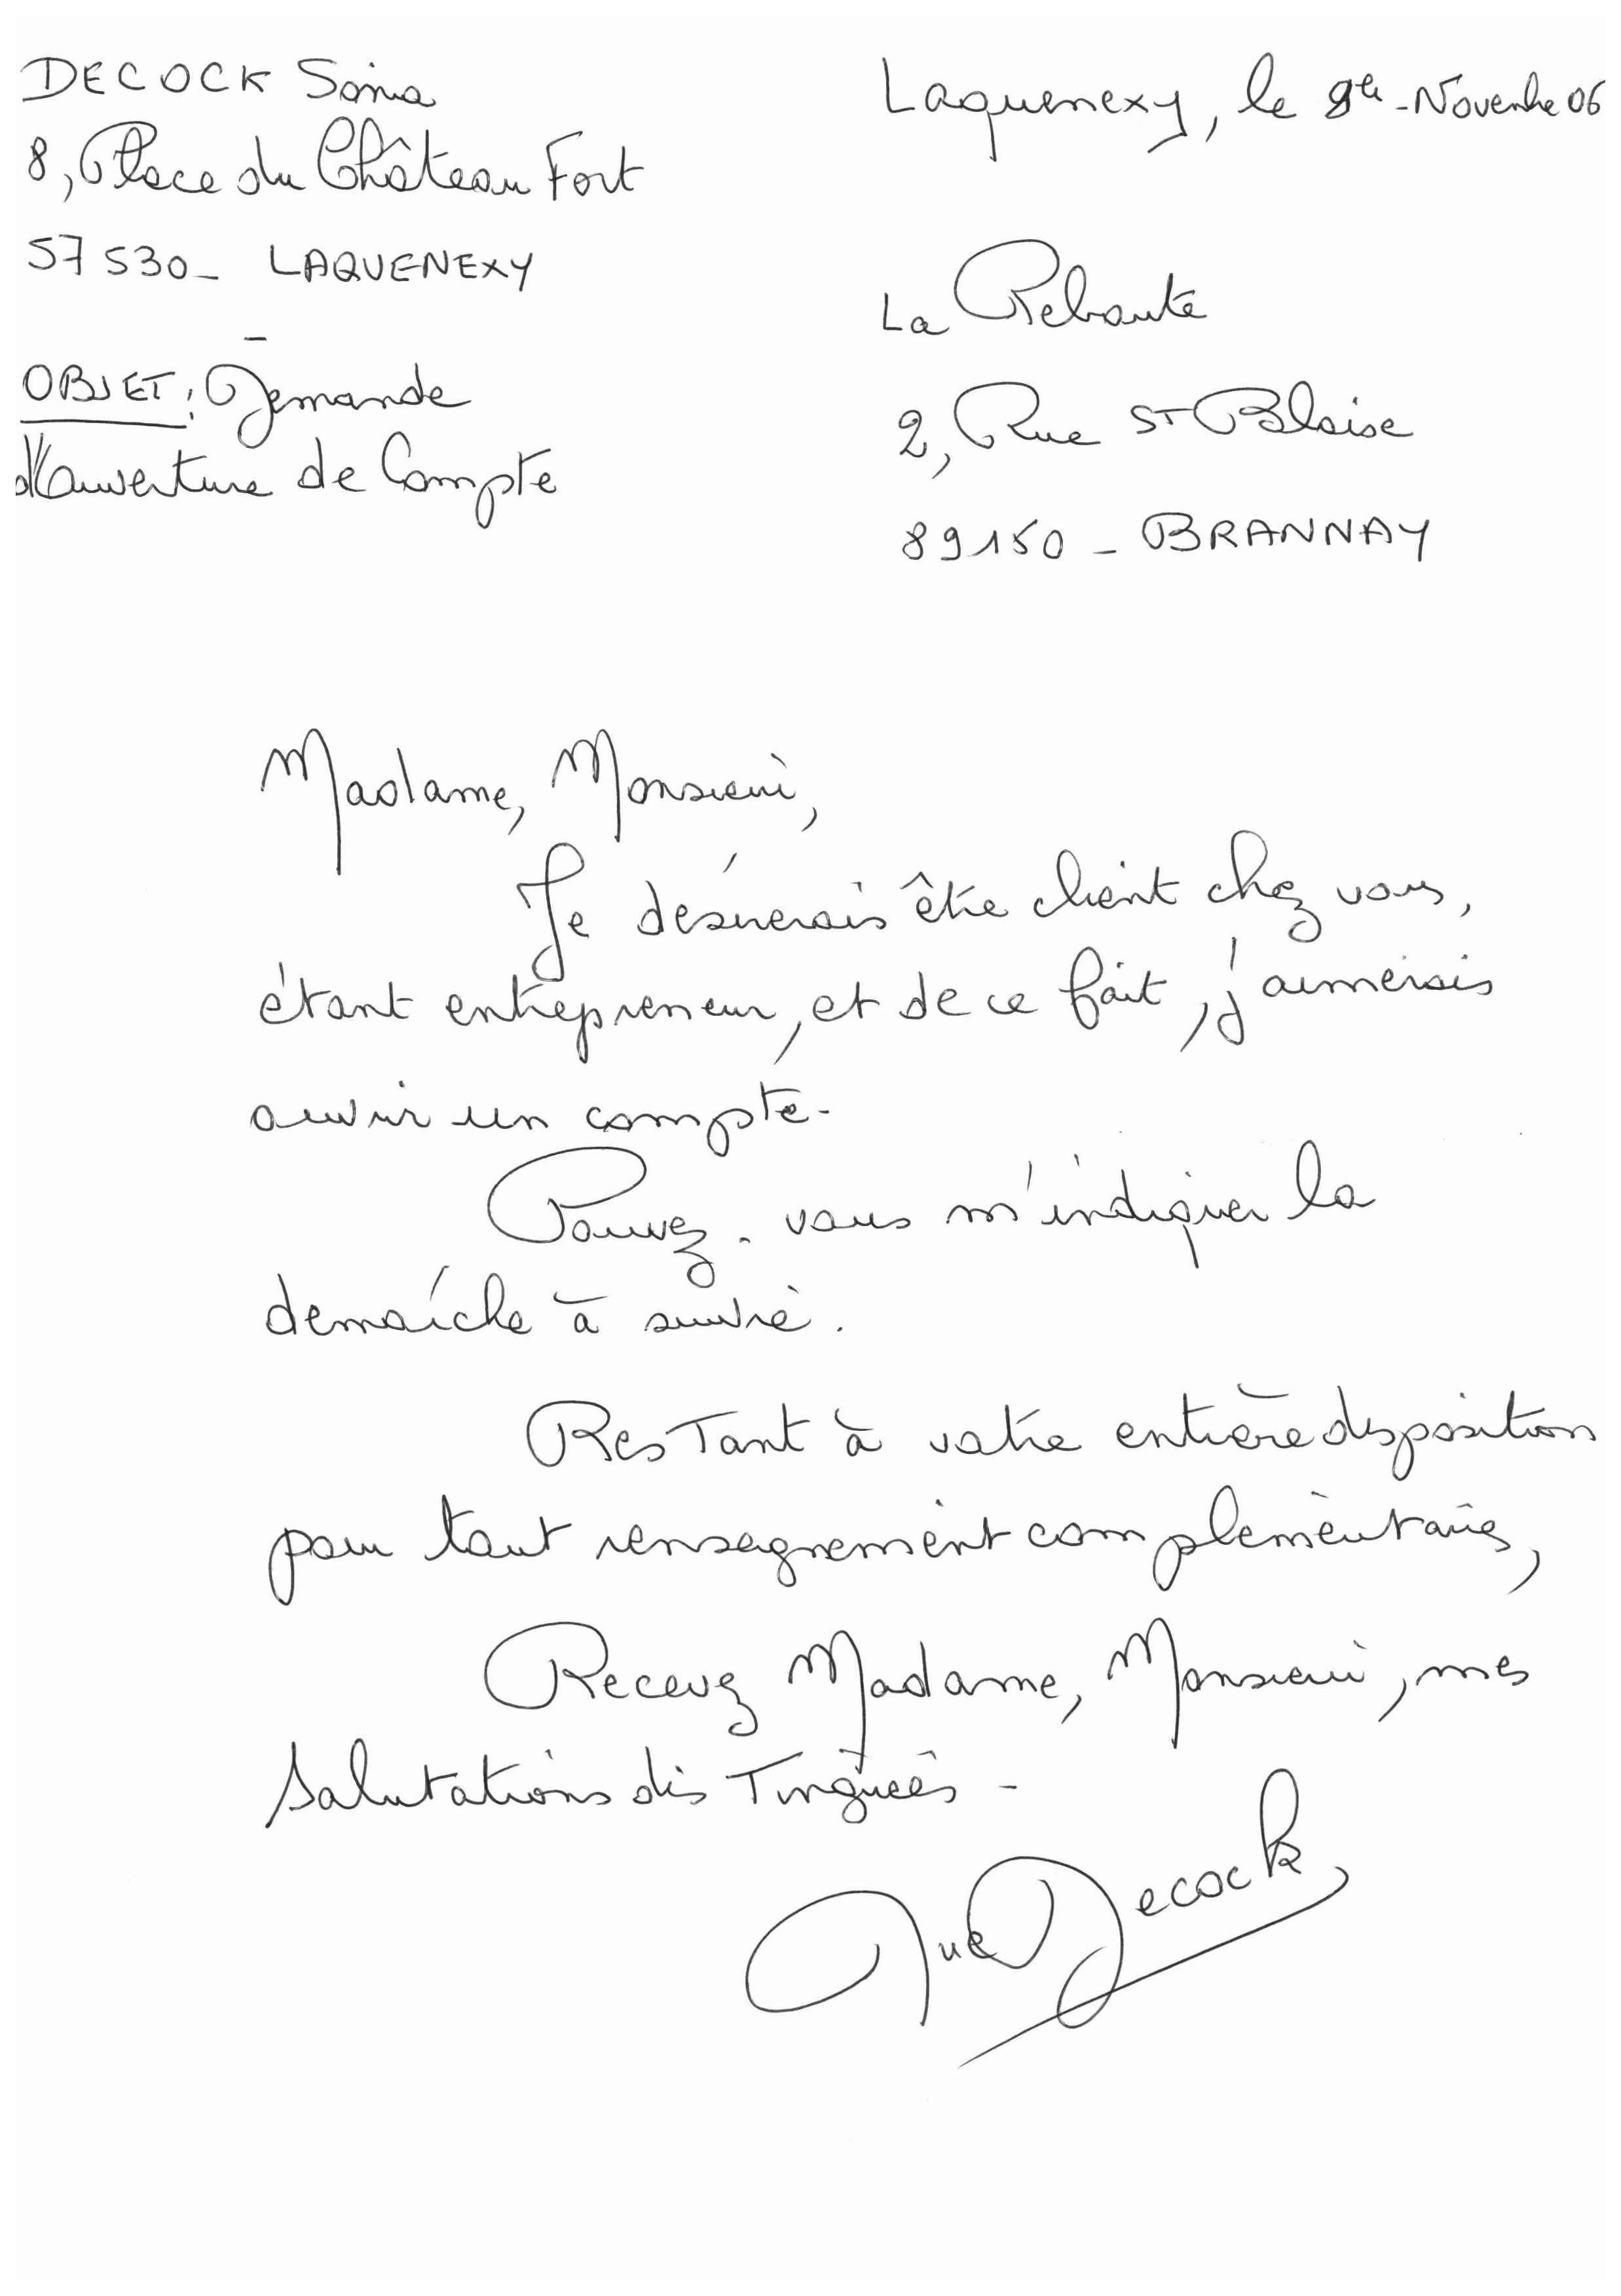 DECOCK Sonia
8, Place du Château Fort
57530 - LAQUENEXY
OBJET : Demande
d'ouverture de Compte
Laquenexy, le - Novembre 06
La Reboute
2, Rue ST Blaise
89150 - BRANNAY
Madame, Monsieur,
Je désirerais être client chez vous,
étant entrepreneur, et de ce fait, j'aimerais
ouvrir un compte.
Pouvez-vous m'indiquer la
démarche à suivre.
Restant à votre entière disposition
pour tout renseignement complémentaires,
Recevez Madame, Monsieur, mes
Salutations distinguées -
Decock